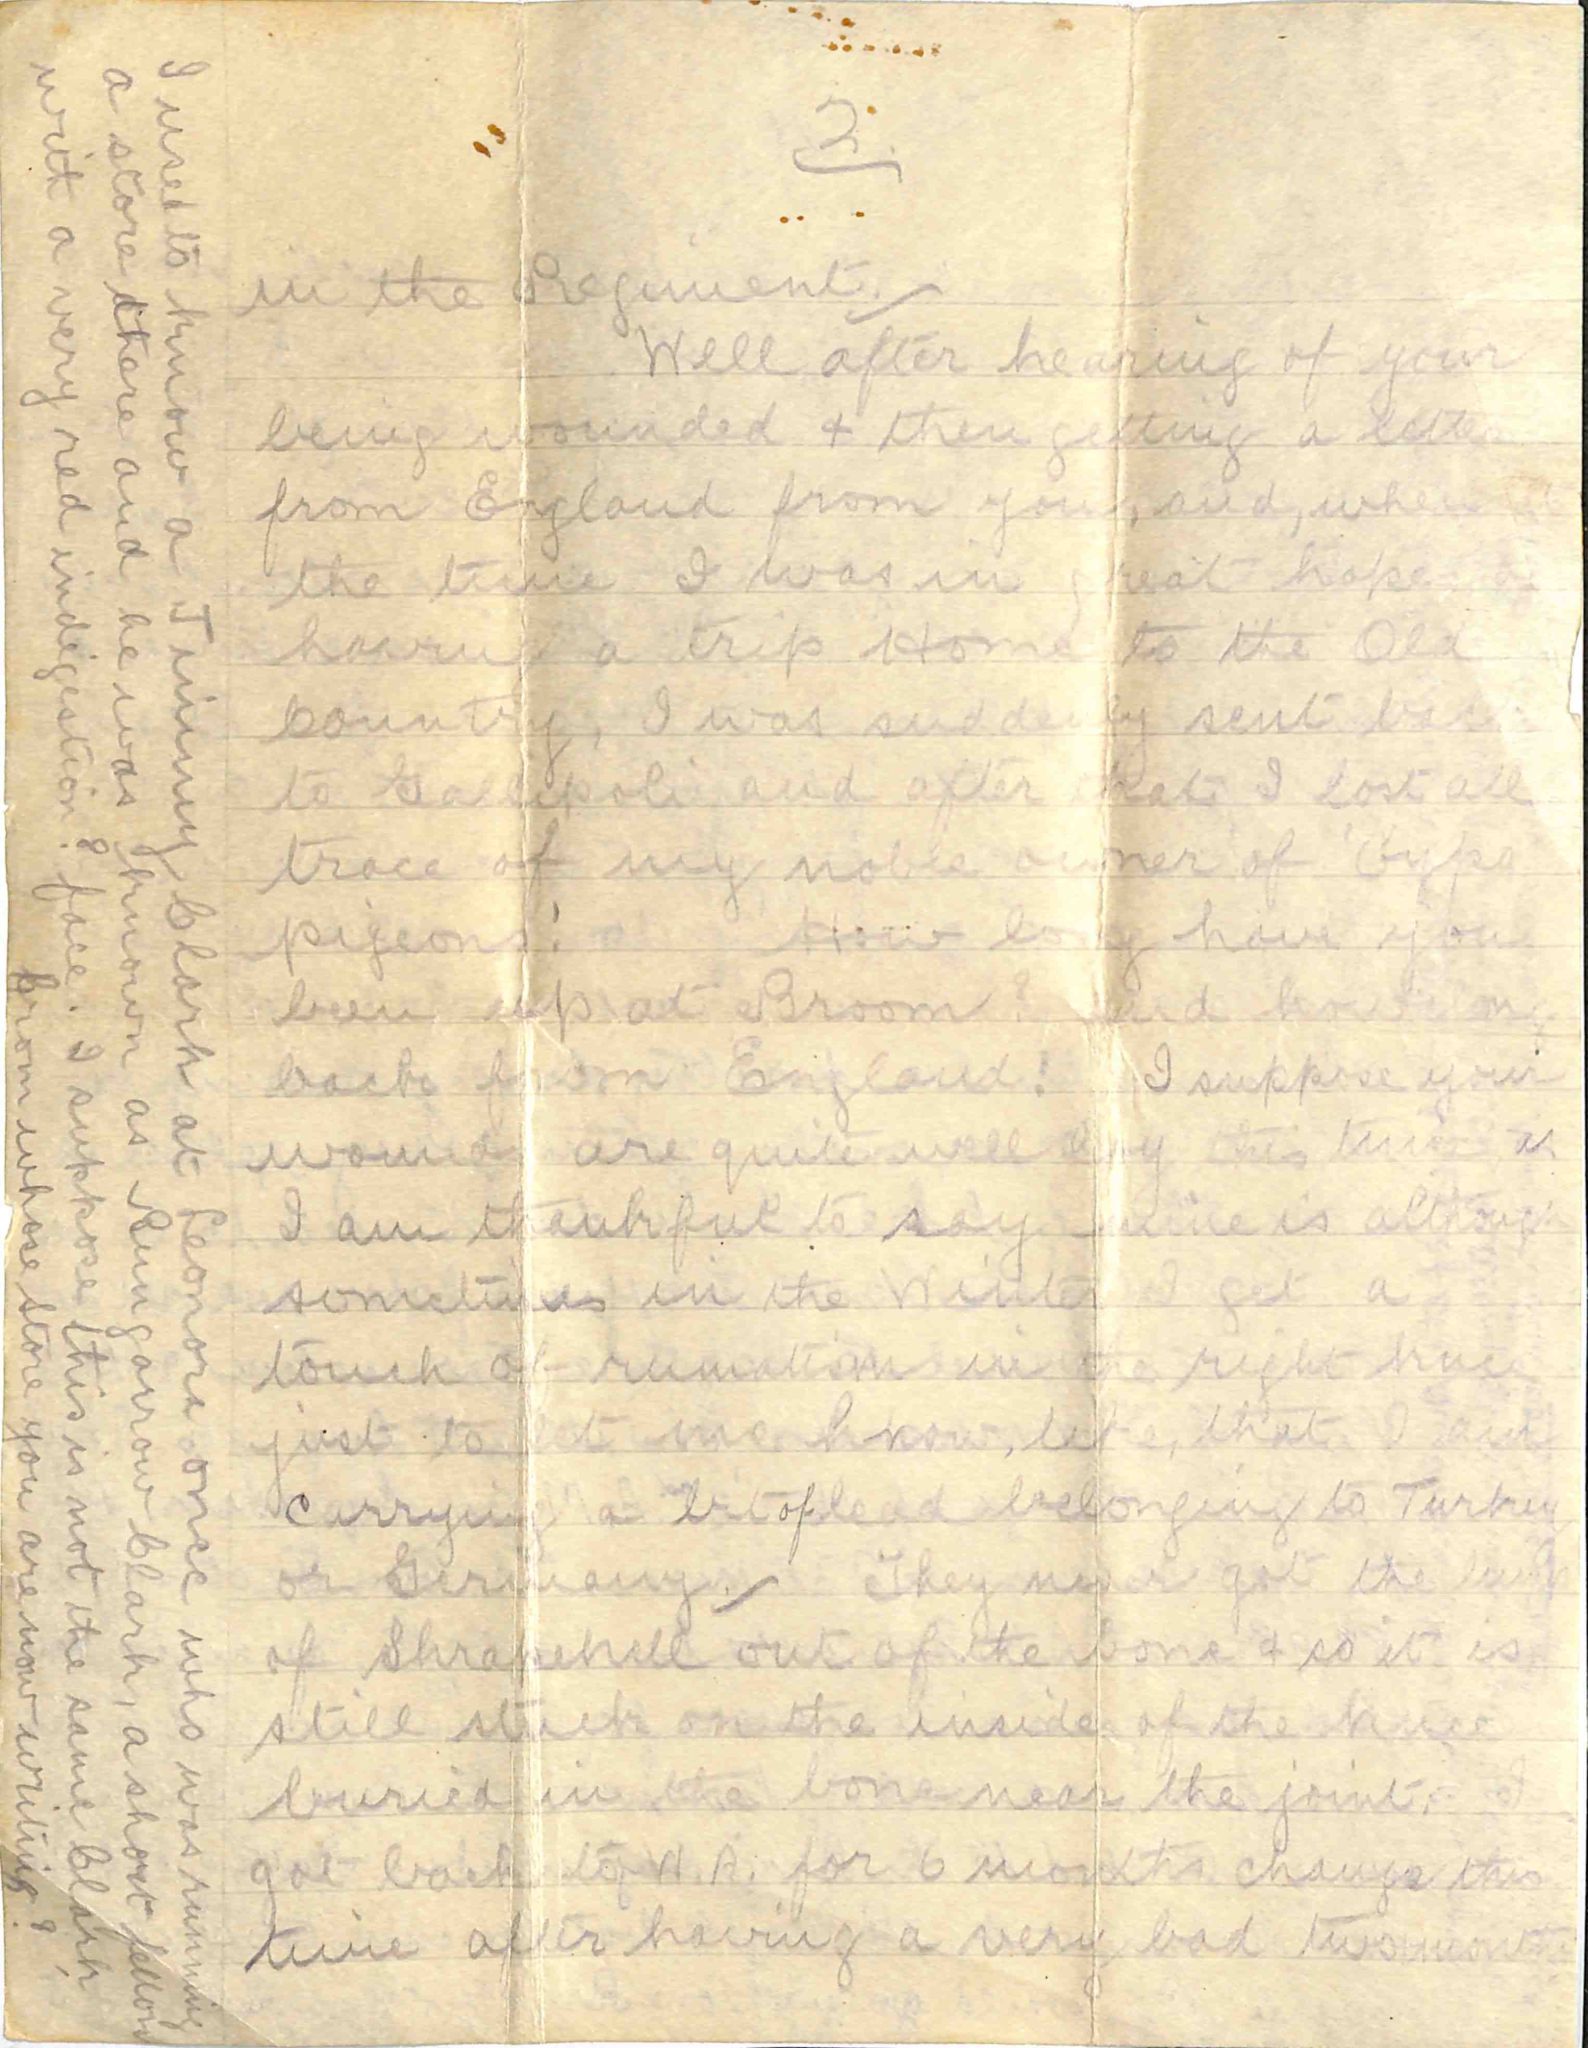 2.
in the Regiment.
Well after hearing of your
being wounded & then getting a letter
from England from you, and, when at
the time I was in great hopes of
having a trip Home to the Old
Country, I was suddenly sent back
to Gallipoli and after that I lost all
trace of my noble owner of Gypo
pigeons! How long have you
been up at Broom? and how long
back from England? I suppose your
wounds are quite well by this time as
I am thankful to say mine is although
sometimes in the Winter I get a
touch of rumatism in the right knee
just to let me know, like, that I am
carrying a bit of lead belonging to Turkey
or Germany. They never got the lump
of Shrapehell out of the bone & so it is
still stuck on the inside of the knee
buried in the bone near the joint. I
got back to A. for 6 months change this
time after having a very bad two months
I used to know a Jimmy Clark at Leonora once who was running
a store there and he was known as Rungarrow Clark, a short fellow
with a very red indigestion? face. I suppose this is not the same Clark,
from whose store you are now writing?